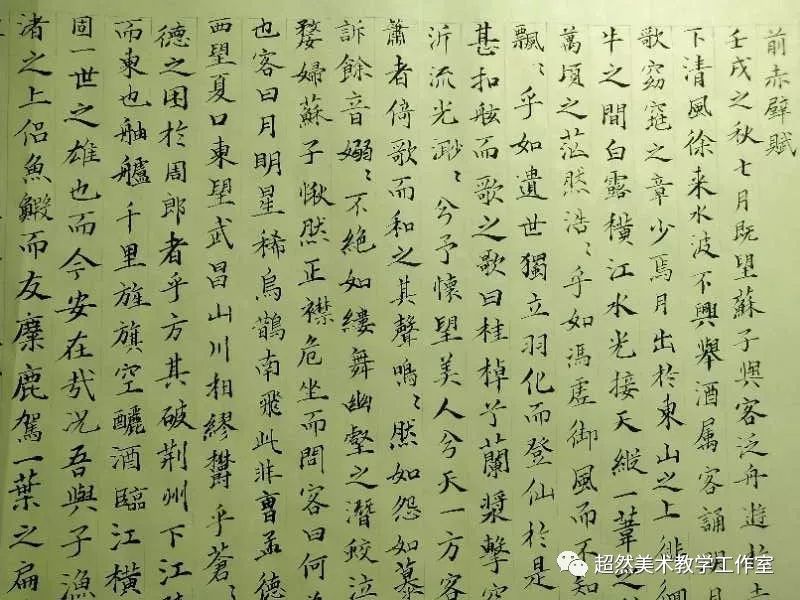 前赤壁賦
壬戌之秋七月既望蘇子與客泛舟遊於
下清風徐来水波不興舉酒属客誦明月
歌窈窕之章少焉月出於東山之上徘徊
牛之間白露橫江水光接天縱一葦之
萬頃之茫然浩〻乎如馮虛御風而不知
飄〻乎如遺世獨立羽化而登仙於是
甚扣舷而歌之歌曰桂棹兮蘭漿擊空
泝流光渺〻兮予懷望美人兮天一方客
簫者倚歌而和之其聲嗚〻然如怨如慕
訴餘音嫋〻不絕如縷舞幽壑之潛蛟泣
嫠婦蘇子愀然正襟危坐而問客曰何
也客曰月明星稀烏鵲南飛此非曹孟德
西望夏口東望武昌山川相繆鬱乎蒼〻
德之困於周郎者乎方其破荊州下江
而東也舳艫千里旌旗空釃酒臨江橫
固一世之雄也而今安在哉况吾與子漁
渚之上侶魚鰕而友麋鹿駕一葉之扁
超然美术教学工作室